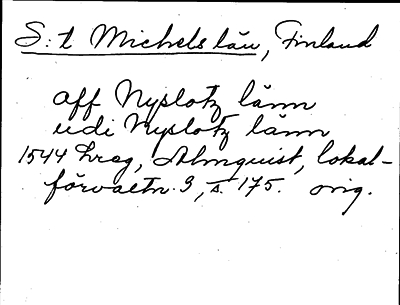 S:t Michels län, Finland
aff Nyslotz länn
udi Nyslotz länn
1544 hreg, Almquist, lokal-
förvaltn. 3, s. 175. orig.